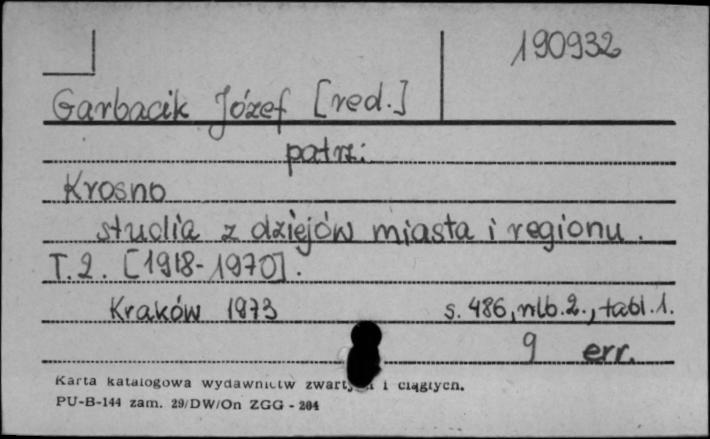 190932
Garbacik Józef [red.]
patrz:
Krosno
studia z dziejów miasta i regionu.
T. 2. [1918-1970].
Kraków 1973 s. 486, nlb. 2., tabl. 1.
9 err.
Karta katalogowa wydawnictw i ciągłych.
PU-B-144 zam. 29/DW/On ZGG - 204